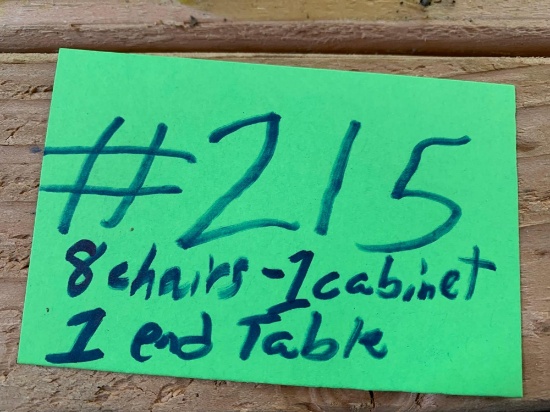 #215
8 chairs - 1 cabinet
1 end Table